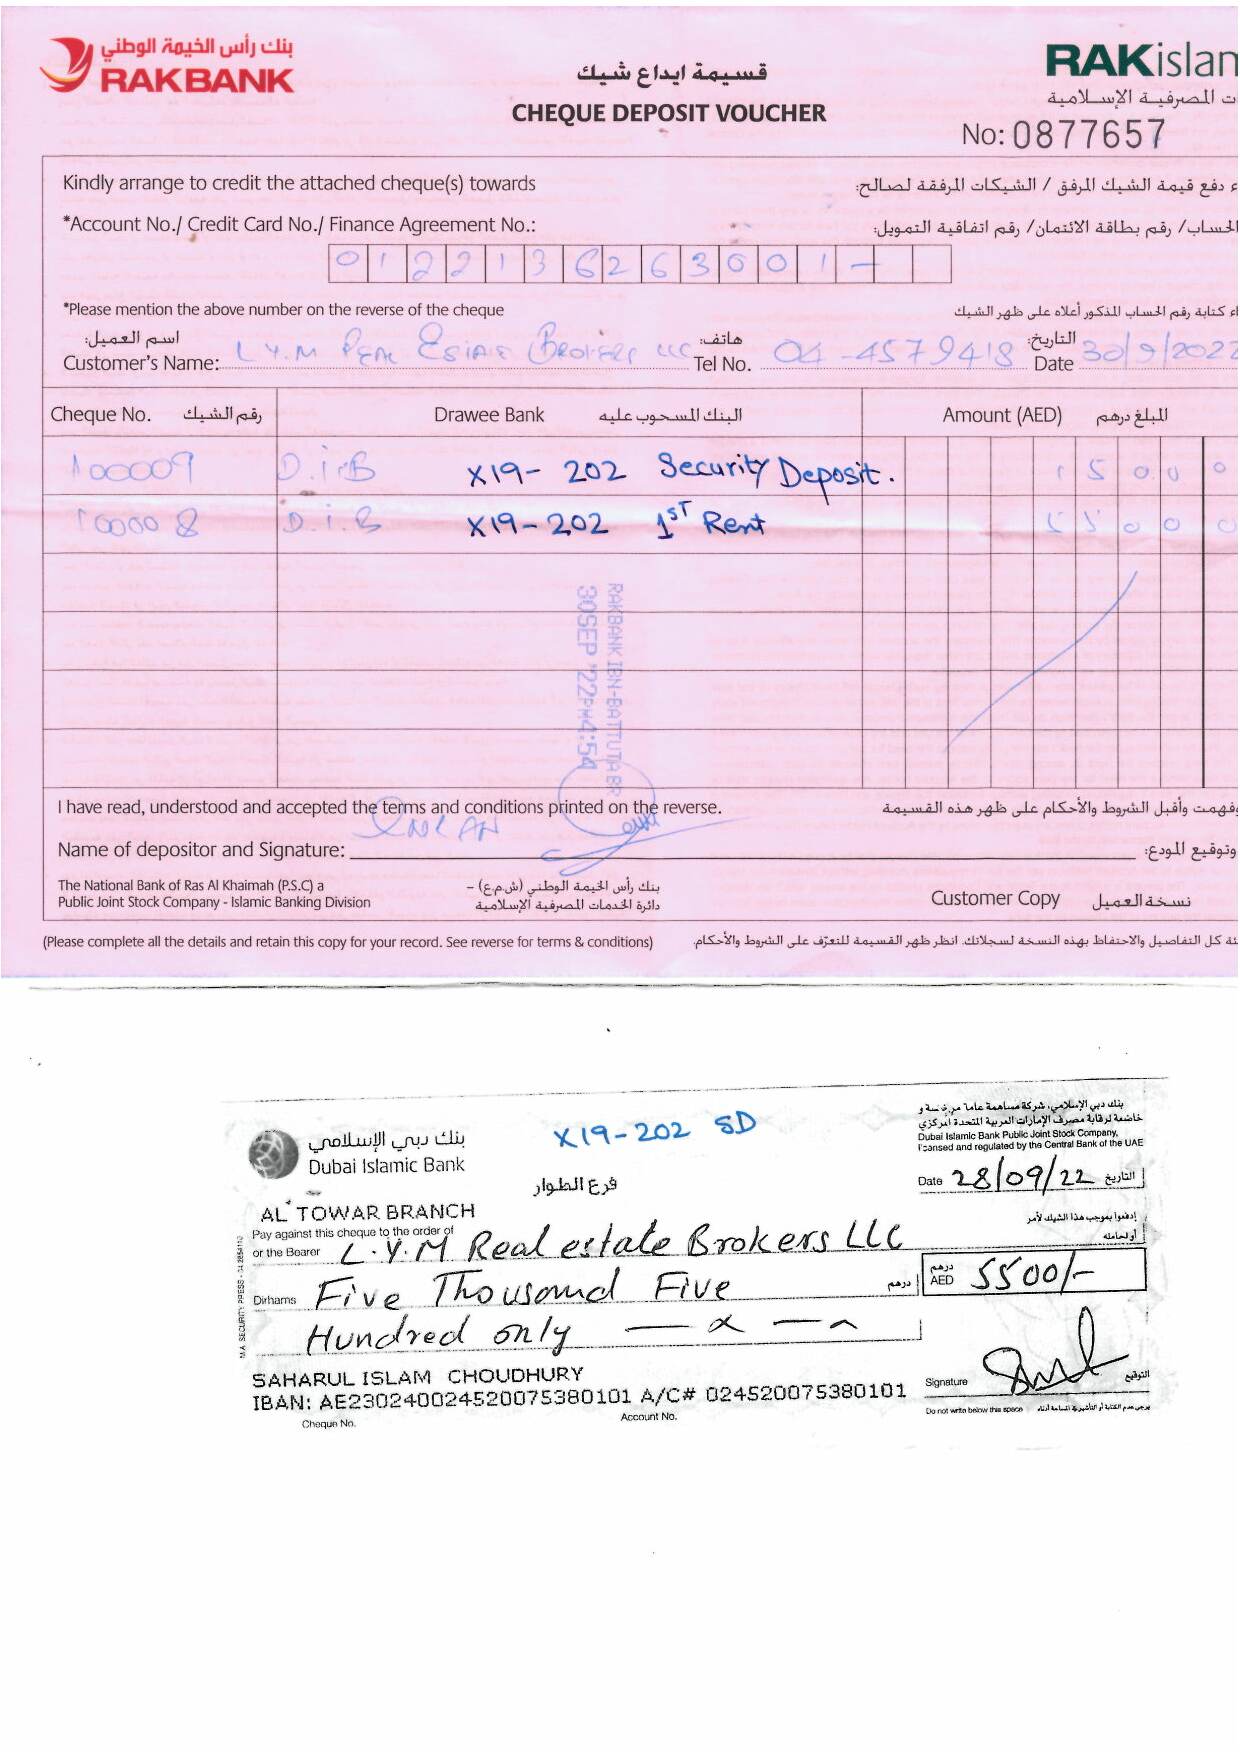 بنك رأس الخيمة الوطني
RAKBANK
قسيمة ايداع شيك
CHEQUE DEPOSIT VOUCHER
RAKislam
ت المصرفية الإسلامية
No: 0877657
Kindly arrange to credit the attached cheque(s) towards
ء دفع قيمة الشيك المرفق / الشيكات المرفقة لصالح:
*Account No./ Credit Card No./ Finance Agreement No.:
الحساب/ رقم بطاقة الائتمان/ رقم اتفاقية التمويل:
0122136263001-
*Please mention the above number on the reverse of the cheque
اء كتابة رقم الحساب المذكور أعلاه على ظهر الشيك
اسم العميل:
هاتف:
التاريخ:
Customer's Name: L.Y.M Broker LLC Tel No. 04-4579418 Date 30/9/2022
Cheque No. رقم الشيك Drawee Bank البنك المسحوب عليه Amount (AED) المبلغ درهم
100009 D.i.B X19- 202 Security Deposit.
100008 D.i.B X19-202 1ST Rent
RAKBANK IBN-BATTUTA BR
30SEP '22PM4:54
I have read, understood and accepted the terms and conditions printed on the reverse.
وفهمت وأقبل الشروط والأحكام على ظهر هذه القسيمة
Name of depositor and Signature:
وتوقيع المودع:
The National Bank of Ras Al Khaimah (P.S.C) a
Public Joint Stock Company - Islamic Banking Division
بنك رأس الخيمة الوطني (ش.م.ع) –
دائرة الخدمات المصرفية الإسلامية
Customer Copy نسخة العميل
(Please complete all the details and retain this copy for your record. See reverse for terms & conditions)
ئة كل التفاصيل والاحتفاظ بهذه النسخة لسجلاتك. انظر ظهر القسيمة للتعرّف على الشروط والأحكام.
X19-202 SD
بنك دبي الإسلامي
Dubai Islamic Bank
فرع الطوار
Dubai Islamic Bank Public Joint Stock Company,
licensed and regulated by the Central Bank of the UAE
Date 28/09/22 التاريخ
AL TOWAR BRANCH
Pay against this cheque to the order of
إدفعوا بموجب هذا الشيك لأمر
or the Bearer L.Y.M Real estate Brokers LLC
أو لحامله
Dirhams Five Thousand Five درهم
درهم
AED 5500/-
Hundred only
SAHARUL ISLAM CHOUDHURY
IBAN: AE230240024520075380101 A/C# 024520075380101
Signature التوقيع
Cheque No. Account No.
Do not write below this space